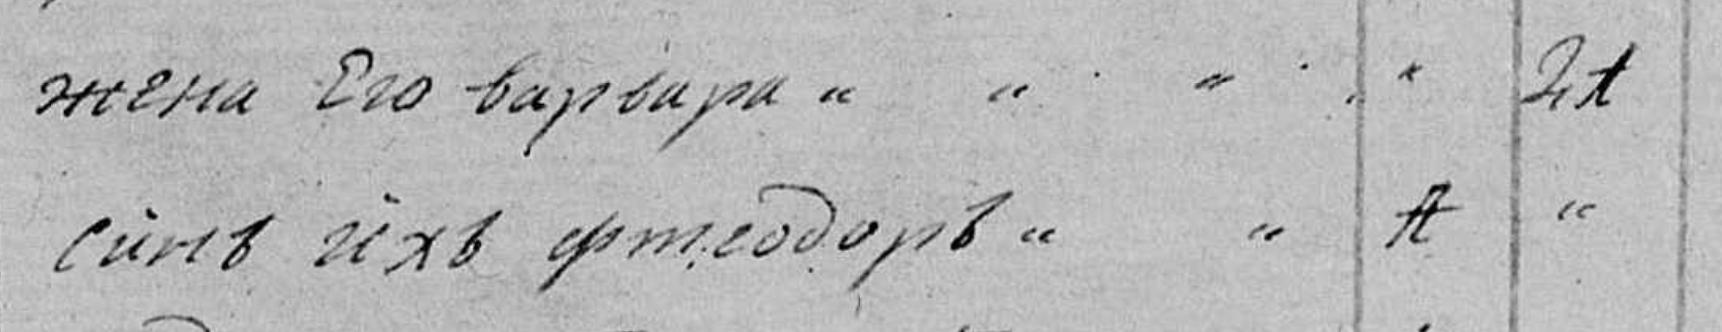 жена Его варвара " " " " 21
синъ ихъ фтеодоръ " " 1 "